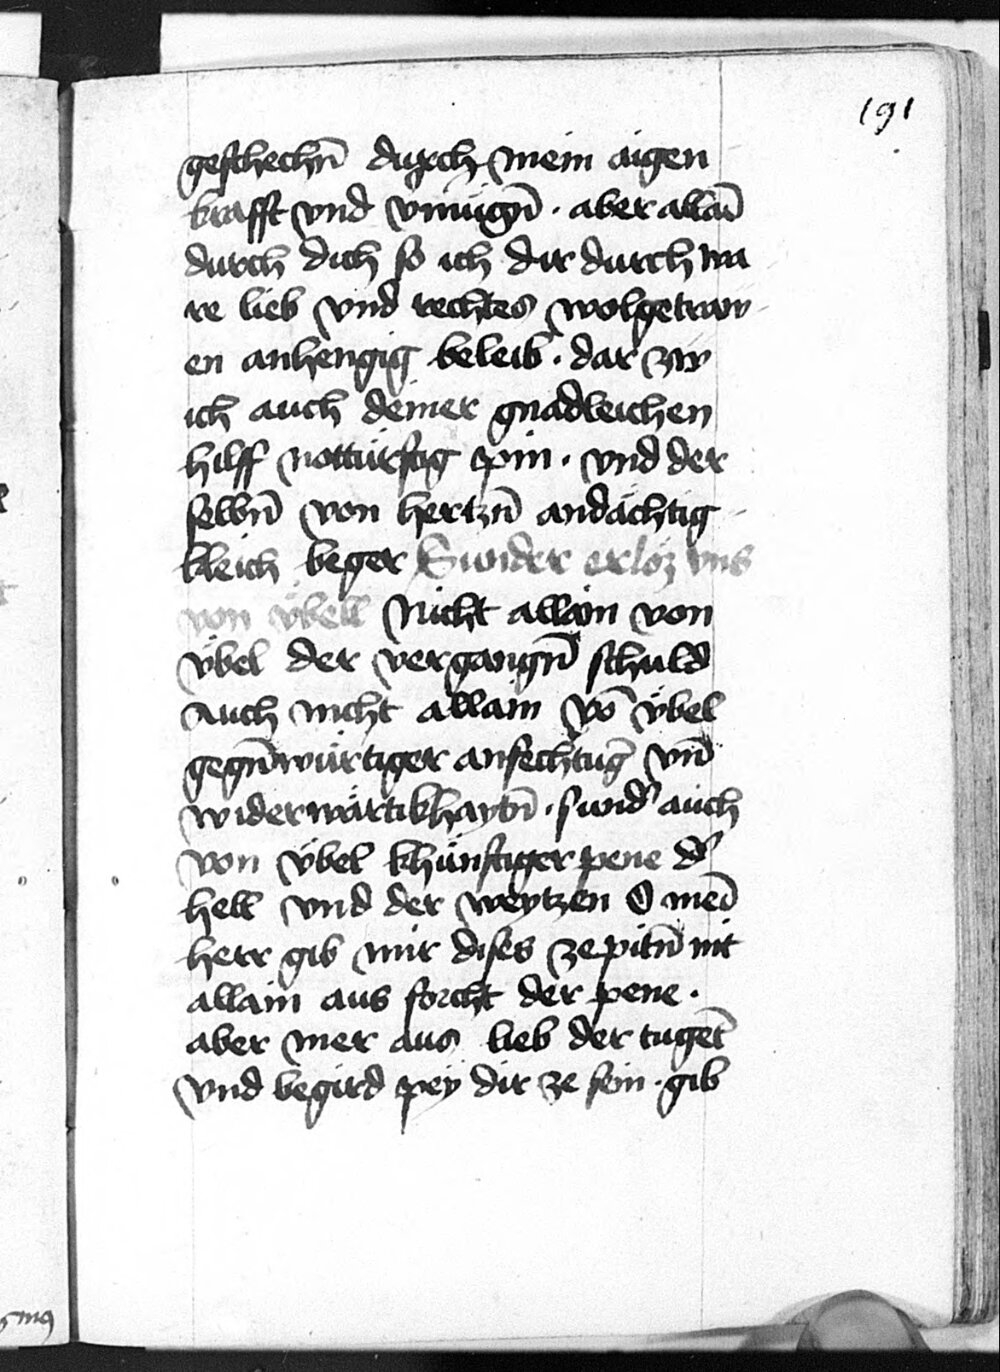 191
geschechn̄ durch mein aigen
krafft vnd vmügn̄ . aber allaī
durch dich so ich dir durch wa
re lieb vnd rechtes wolgetraw
en anhengig beleib . dar zw
ich auch deiner gnadleichen
hilff nottürftig pin . vnd der
selbn̄ von hertzn̄ andächtig
kleich beger Sunder erlöz vns
von übell Nicht allain von
übel der vergangn̄ schuld
auch nicht allain vō übel
gegn̄würtiger anfechtūg vn̄d
widerwärtikhaytn̄ . sund' auch
von übel khünftiger pene d'
hell vnd der weytzen O meī
herr gib mir dises ze pitn̄ nit
allain aus forcht der pene .
aber mer aus lieb der tuget̄
vnd begird pey dir ze sein . gib